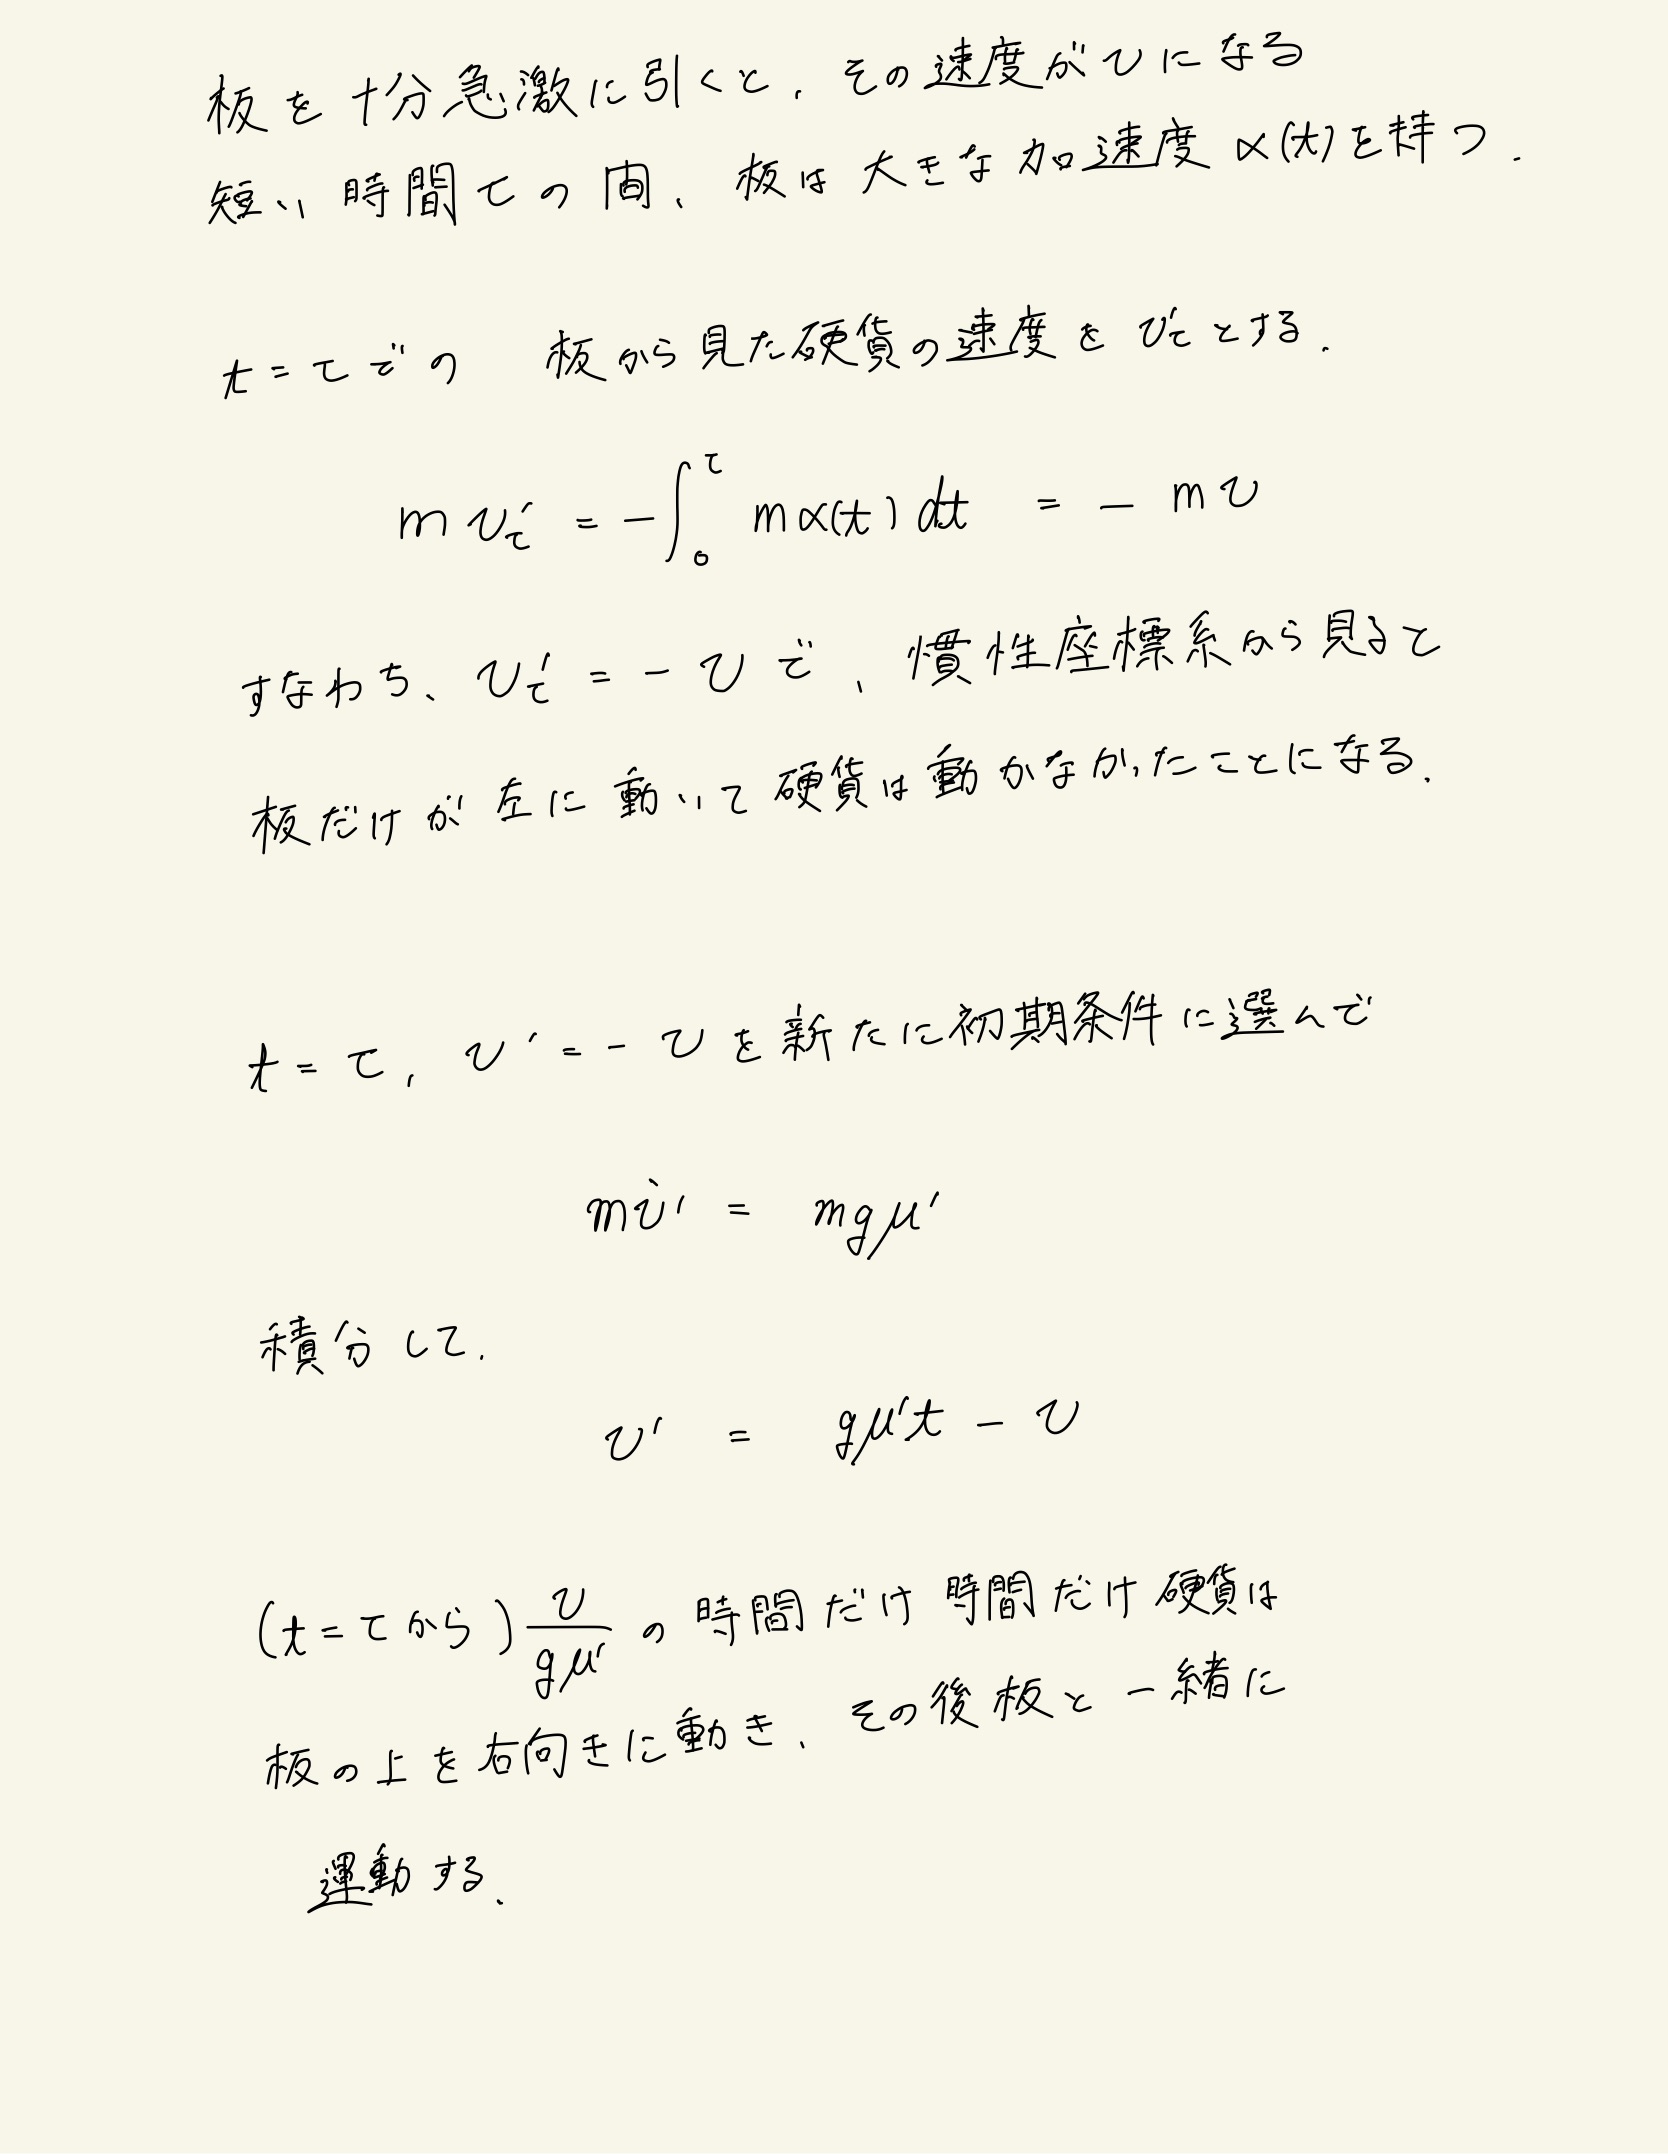 板を十分急激に引くと、その速度がvになる
短い時間τの間、板は大きな加速度α(t)を持つ.
t=τでの 板から見た硬貨の速度をv'τとする.
mv'τ = -∫₀^τ mα(t)dt = -mv
すなわち、v'τ=-vで、慣性座標系から見ると
板だけが左に動いて硬貨は動かなかったことになる.
t=τ, v'=-vを新たに初期条件に選んで
mv̇' = mgμ'
積分して.
v' = gμ't - v
(t=τから) v/gμ' の時間だけ時間だけ硬貨は
板の上を右向きに動き、その後板と一緒に
運動する.